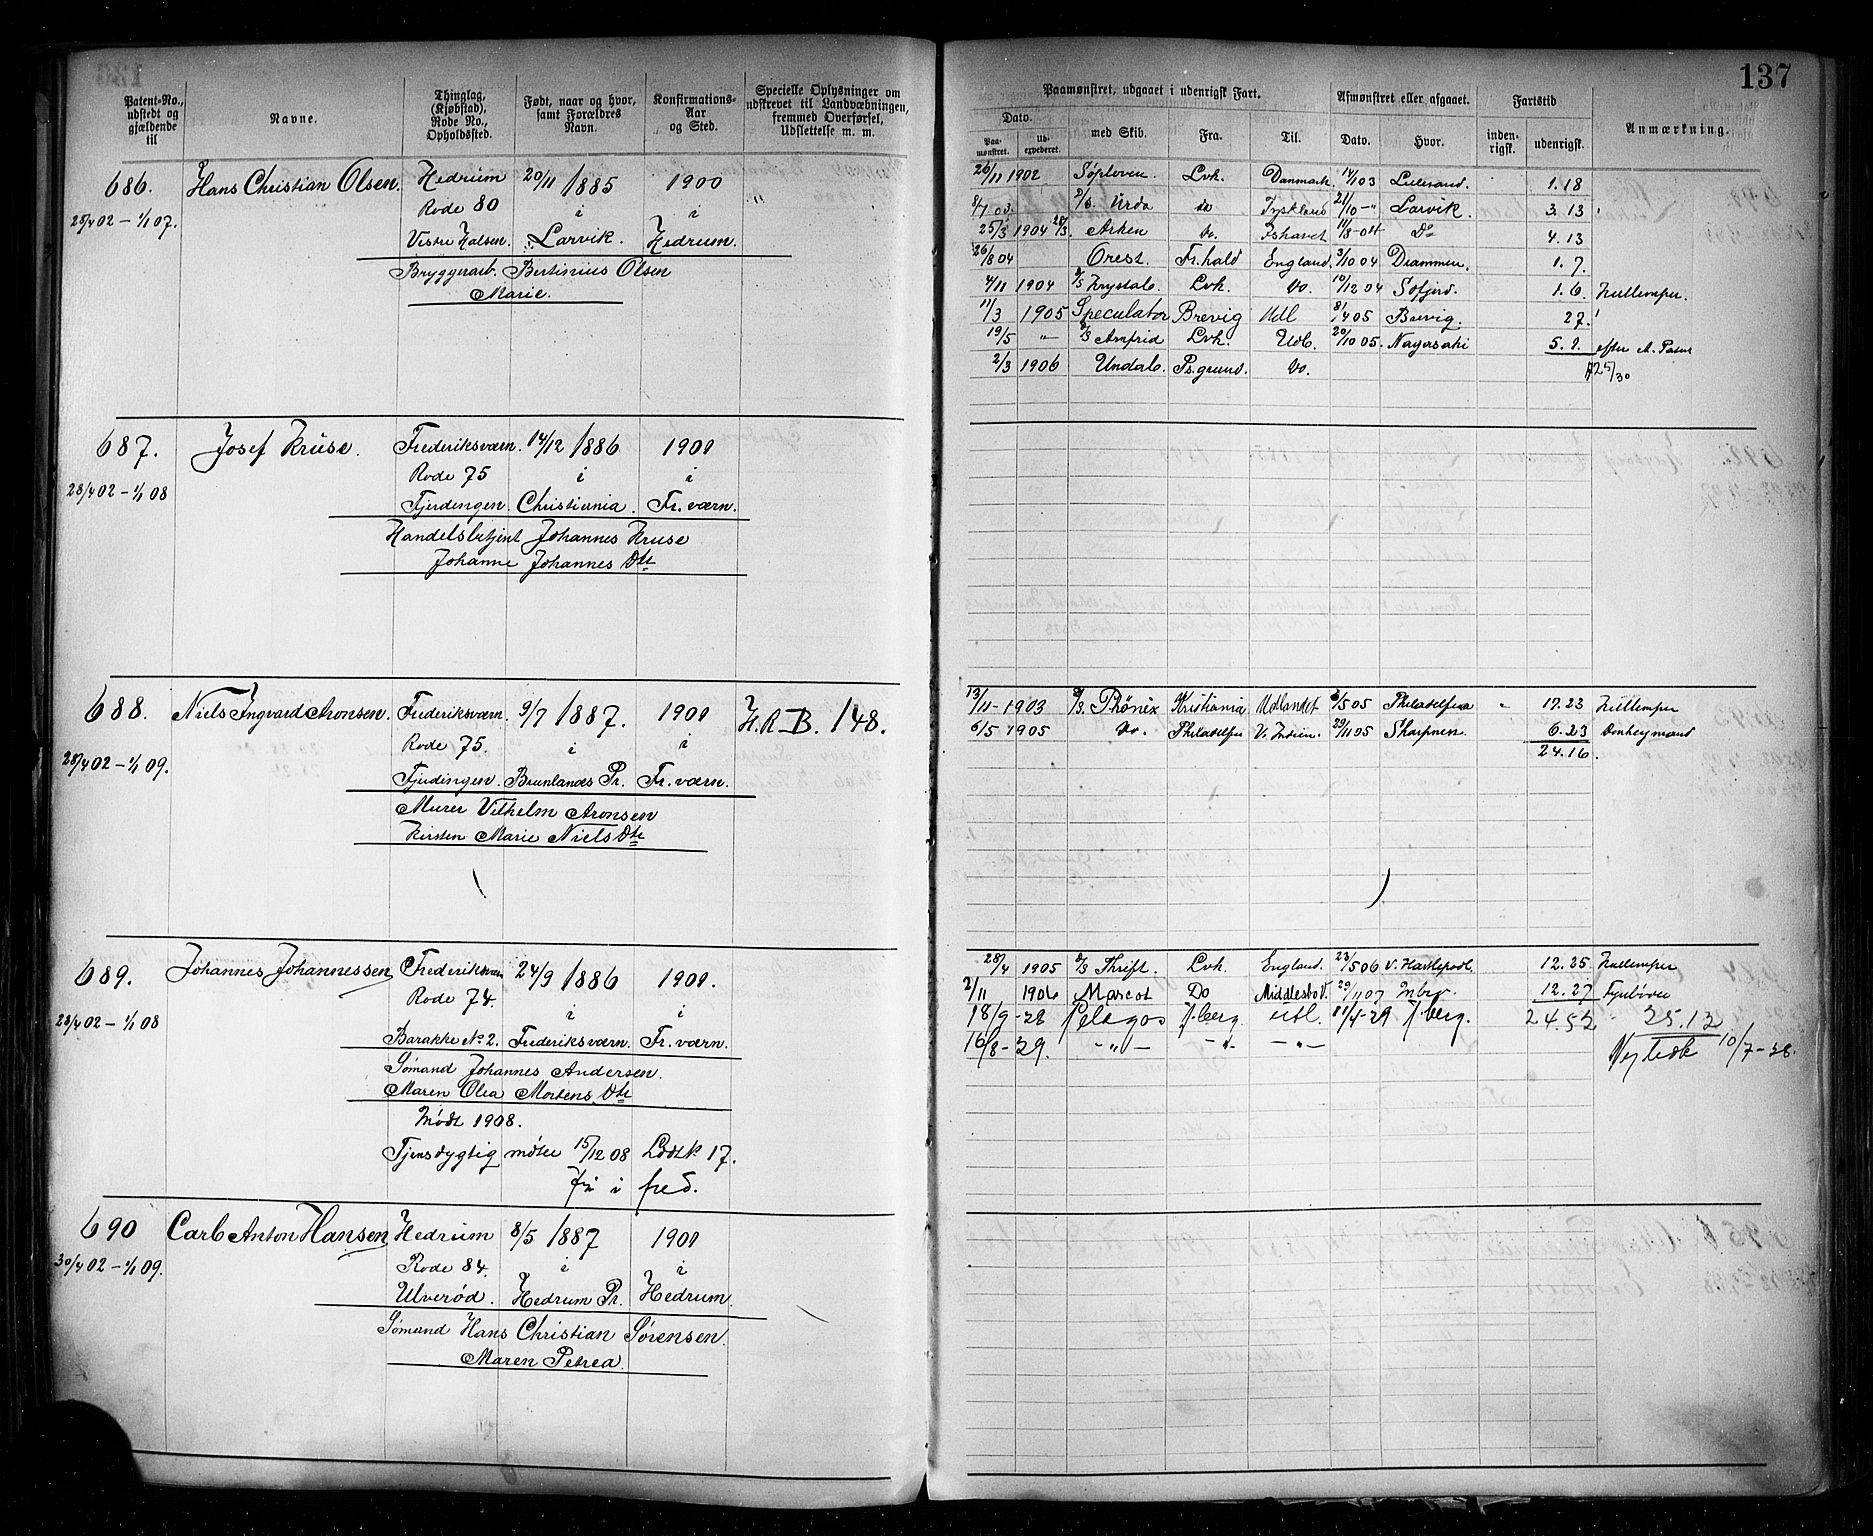 137
Patent-No., udstedt og gjældende til
Navne.
Thinglag, (Kjøbstad), Rode No., Opholdssted.
Født, naar og hvor, samt Forældres Navn.
Konfirmations-Aar og Sted.
Specielle Oplysninger om udskrevet til Landværnet, fremmed Overførsel, Udslettelse m. m.
Paamønstret, udgaaet i udenrigsk Fart.
Afmønstret eller afgaaet.
Fartstid
Anmærkning.
Dato.
Paamønstret.
udexpederet.
med Skib.
Fra.
Til.
Dato.
Hvor.
indenrigsk.
udenrigsk.
686. Hans Christian Olsen. Hedrum 20/11 1885 1900
Rode 80 i i
25/4 02 - 1/1 07.
Vestre Halsen. Larvik. Hedrum.
Bryggerarb. Bertinius Olsen
Marie.
26/11 1902 Søploven. Lvk. Danmark 14/1 03 Lillesand. 1.18
8/7 03. S/s. Urda do Tyskland 21/10 -"- Larvik. 3.13
25/3 1904 28/3. Arken Do. Ishavet 11/8-04 Do 4.13
26/8 04 Orest. Fr.hald England. 3/10 04 Drammen. 1.7.
4/11 1904 S/S Krystal. Lvk. Do. 10/12 04 Sofjord. 1.6. Kullemper.
11/3 1905 Speculator Brevig Udl 8/4 05 Brevig. 27.
19/5 -"- S/S Arnfrid Lvk. Udl. 20/10 05. Nagasaki 5.1. efter A. Patent
2/3 1906 Undal. Ps.grund. Do. A 25/30
687. Josef Kruse. Frederiksværn. 14/12 1886 1901
Rode 75 i i
28/4 02 - 1/1 08
Fjerdingen. Christiania. Fr. værn.
Handelsbetjent Johannes Kruse
Johanne Johannes Dtr
688. Niels Ingvard Aronsen. Frederiksværn. 9/7 1887. 1901 H.R.B. 148.
Rode 75. i i
28/4 02 - 1/1 09.
Fjerdingen. Brunlanæs Pr. Fr. værn.
Murer Vilhelm Aronsen
Kirsten Marie Niels Dtr
13/11-1903 S/s. Phönix Kristiania Udlandet 6/5 05 Philadelfia 17.23 Kullemper
6/5-1905 Do. Philadelfia V. Indien. 29/11 05 Sharpnen. 6.23 Donkeymand
24.16.
689. Johannes Johannessen Frederiksværn 24/9 1886 1901.
Rode 74. i i
28/4 02 - 1/1 08
Barakke No 2. Frederiksværn. Fr. værn.
Sømand Johannes Andersen.
Maren Olea Mortens. Dtr
Mødt 1908.
Tjensdygtig møter 15/12 08 Lodtk 17.
fri i fred.
28/4 1905 S/S Thrift. Lvk. England. 23/5 06 V. Hartlepool. 12.25. Kullemper
2/11 1906 Mascot Do Middlesbo V. 29/11 07 12.27 Fyrbøter
18/9-28 Pelagos T.berg. utl. 11/4-29 T.berg. 24.52 25.12
16/8-29. -"- -"- -"- 10/7-28.
690 Carl Anton Hansen Hedrum 8/5 1887 1901
Rode 84. i i
30/4 02 - 1/1 09.
Ulverød. Hedrum Pr. Hedrum.
Sømand Hans Christian Sørensen.
Maren Petrea.